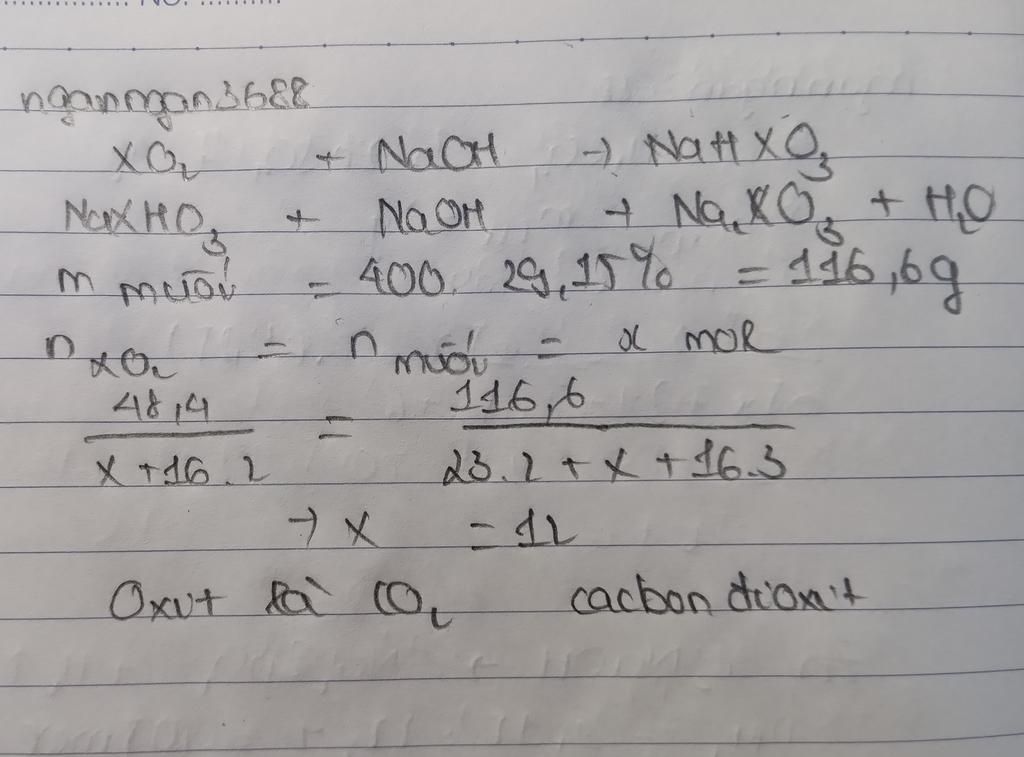 NO.
nganngan3688
XO₂ + NaOH → NaHXO₃
NaXHO₃ + NaOH → Na₂XO₃ + H₂O
m muối = 400. 29,15% = 116,6g
n XO₂ = n muối = x mol
48,4 / X+16.2 = 116,6 / 23.2+X+16.3
→ X = 12
Oxit là CO₂ cacbon đioxit